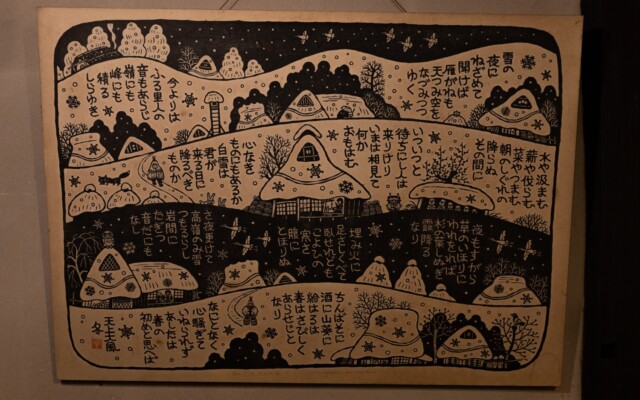 雪の
夜に
ねざめて
聞けば
雁がねも
天つみ空を
なづみつつ
ゆく
今よりは
ふる里人の
音もあらじ
嶺にも
峰にも
積る
しらゆき
水や汲まむ
薪や伐らむ
菜やつまむ
朝しぐれの
降らぬ
その間に
いついつと
待ちにし人は
来りけり
いまは相見て
何か
おもはむ
心なき
ものにもあるか
白雪は
君が
来る日に
降るべき
ものか
夜もすがら
草のいほりに
ゆれをれば
杉の葉しぬぎ
霰降る
なり
埋み火に
足さしくべて
臥せれども
こよひの
寒さ
腹に
とほりぬ
さ夜更けて
高嶺のみ雪
つもるらし
岩間に
たぎつ
音だにも
なし
ちんばそに
酒に山葵に
給はるは
春はさびしく
あらせじと
なり
なにとなく
心騒ぎて
いねられず
あしたは
春の
初めと思へば
冬